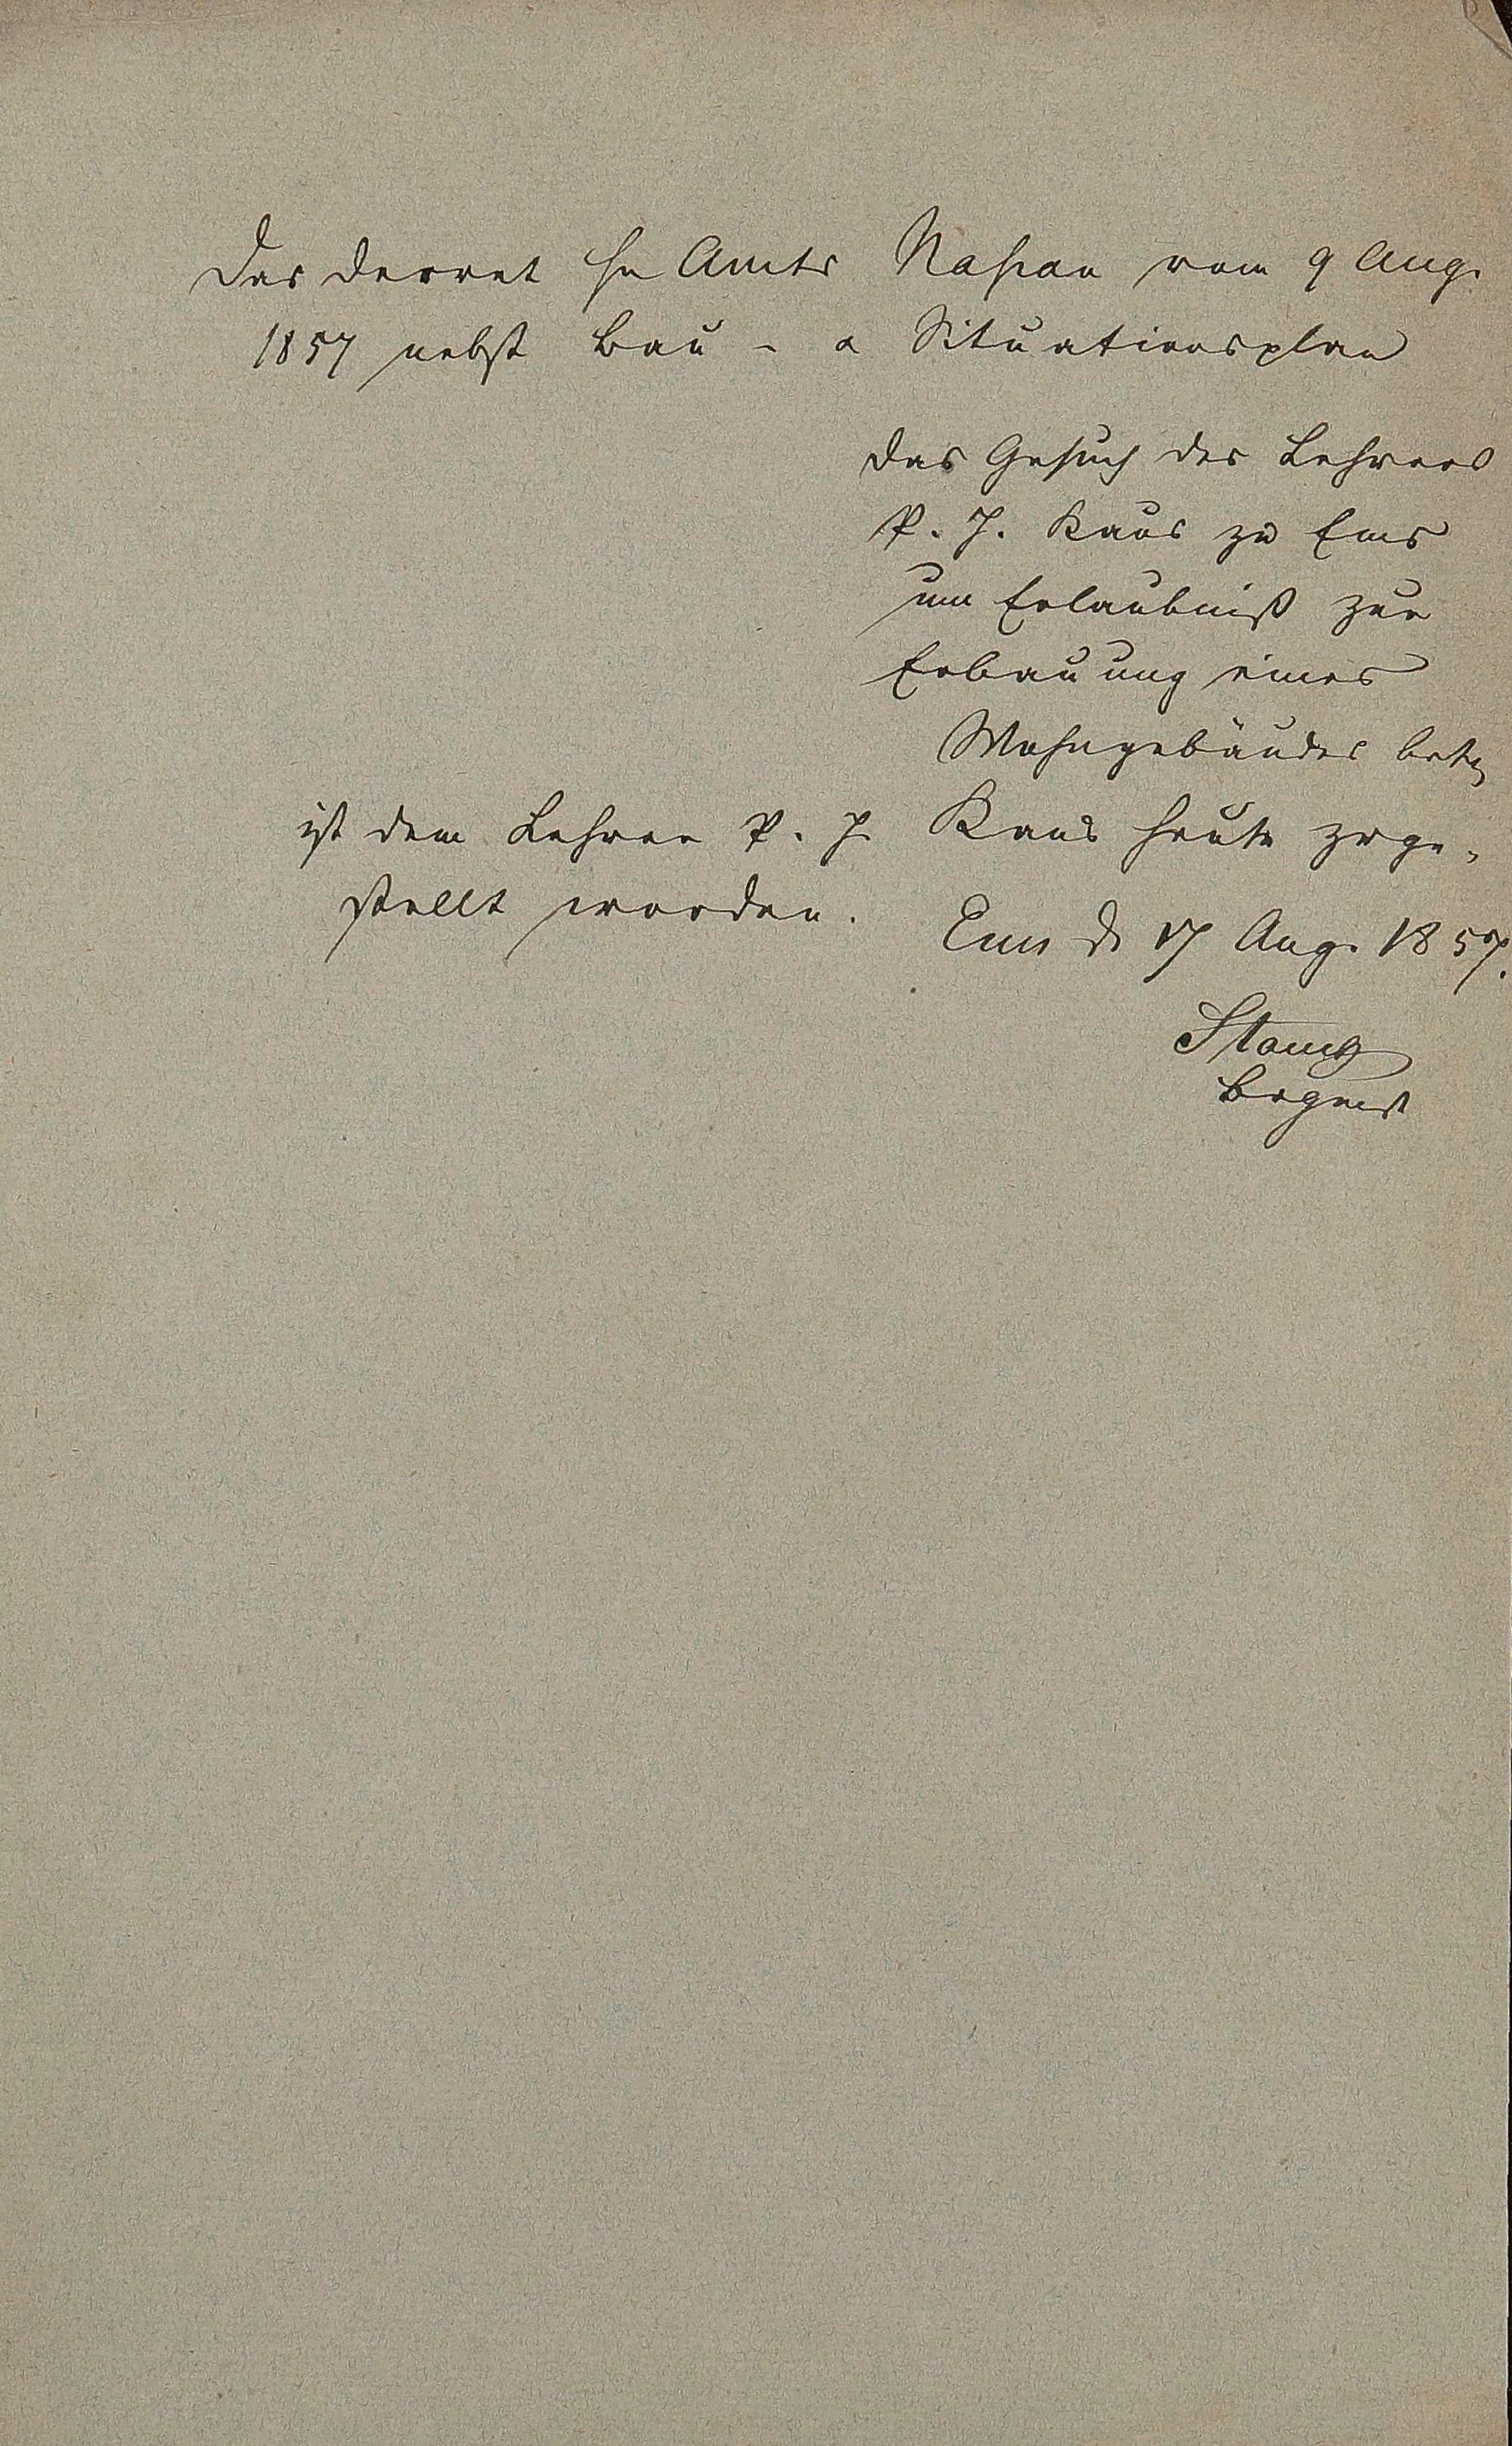 Das Decret Hn Amts Nassau vom 9 Aug.
1857 nebst Bau- u Situationsplan
das Gesuch des Lehrers
P. J. Kaus zu Ems
um Erlaubniß zur
Erbauung eines
Wohngebäudes betr
ist dem Lehrer P. J. Kaus heute zuge-
stellt worden. Ems d 17 Aug. 1857.
Brgmst